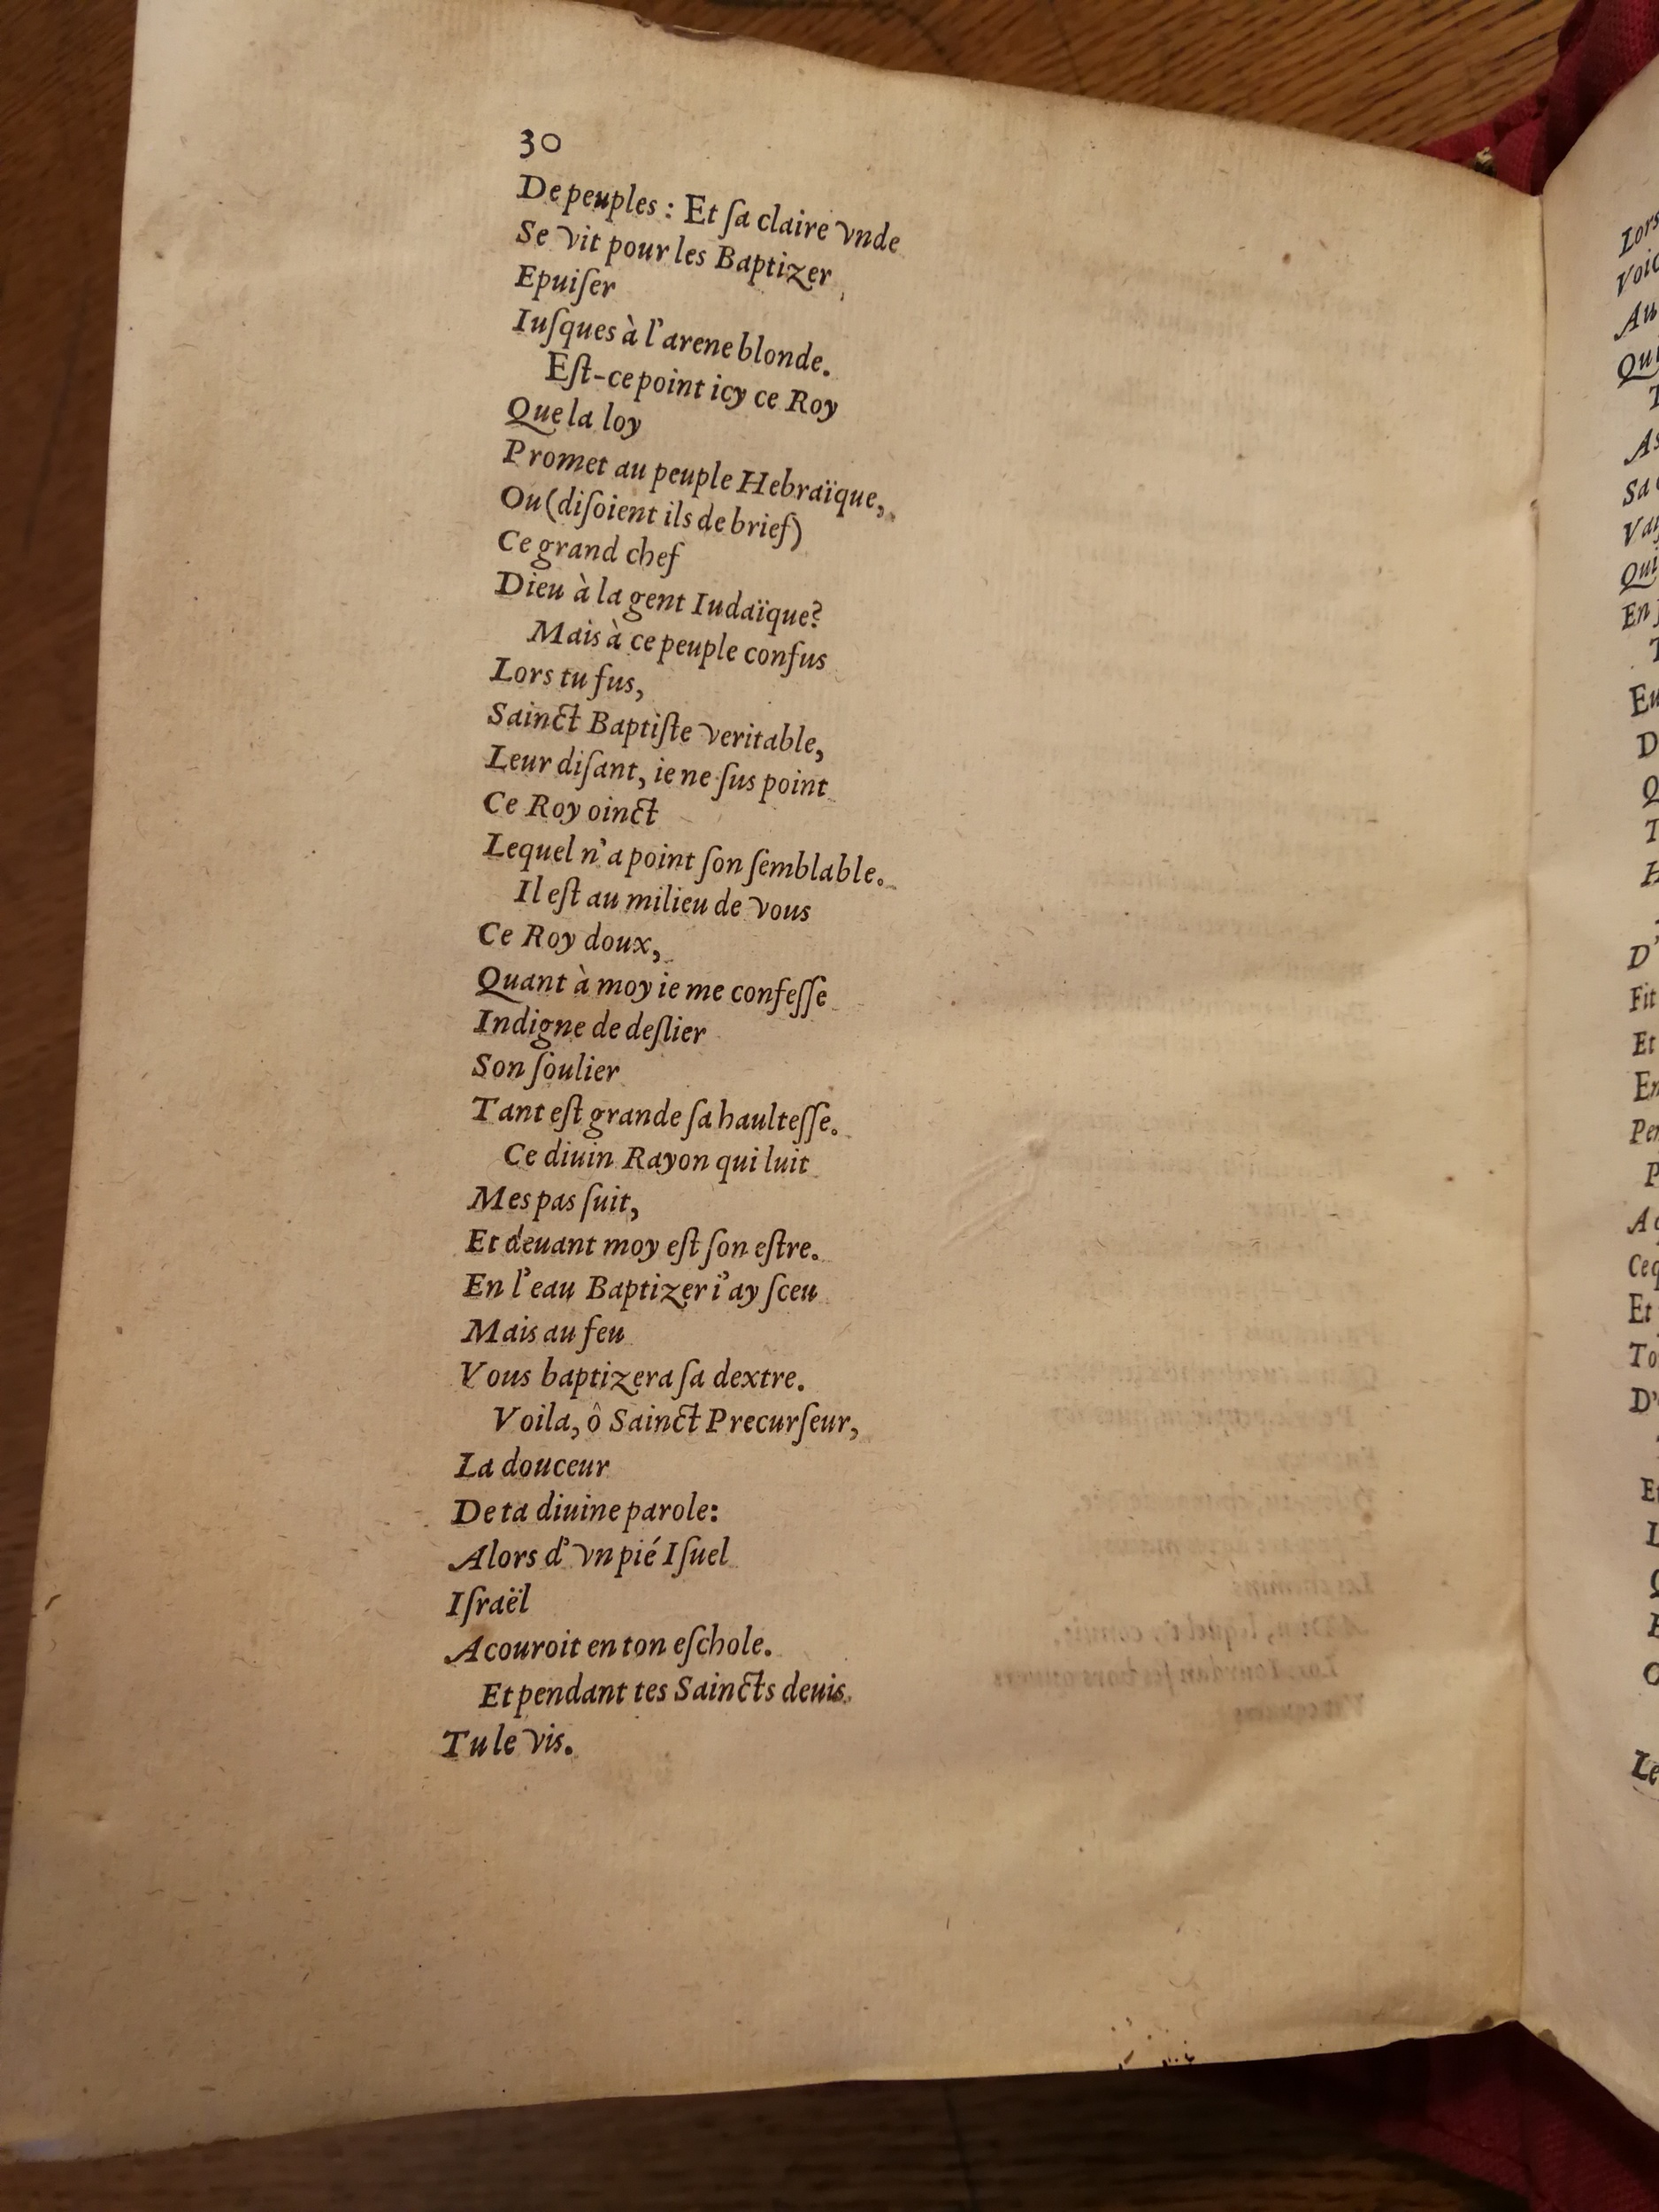 30
De peuples : Et ſa claire vnde
Se vit pour les Baptizer
Epuiſer
Iuſques à l'arene blonde.
Eſt-ce point icy ce Roy
Que la loy
Promet au peuple Hebraïque,
Ou (diſoient ils de brief)
Ce grand chef
Dieu à la gent Iudaïque?
Mais à ce peuple confus
Lors tu fus,
Sainct Baptiſte veritable,
Leur diſant, ie ne ſus point
Ce Roy oinct
Lequel n'a point ſon ſemblable.
Il eſt au milieu de vous
Ce Roy doux,
Quant à moy ie me confeſſe
Indigne de deſlier
Son ſoulier
Tant eſt grande ſa haulteſſe.
Ce diuin Rayon qui luit
Mes pas ſuit,
Et deuant moy eſt ſon eſtre.
En l'eau Baptizer i'ay ſceu
Mais au feu
Vous baptizera ſa dextre.
Voila, ô Sainct Precurſeur,
La douceur
De ta diuine parole:
Alors d'vn pié Iſuel
Iſraël
Acouroit en ton eſchole.
Et pendant tes Saincts deuis
Tu le vis.